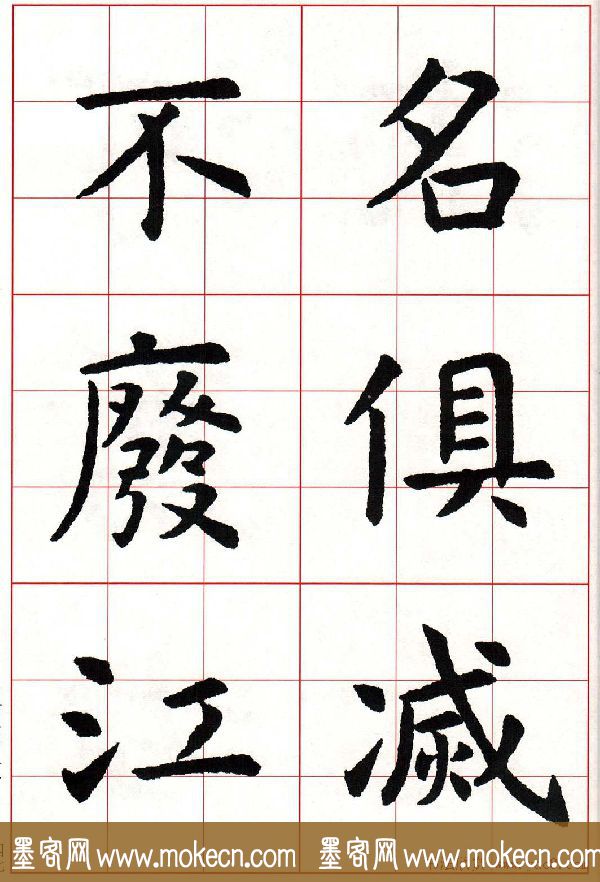 名俱滅
不廢江
墨客网 www.mokecn.com 墨客网 www.mokecn.com